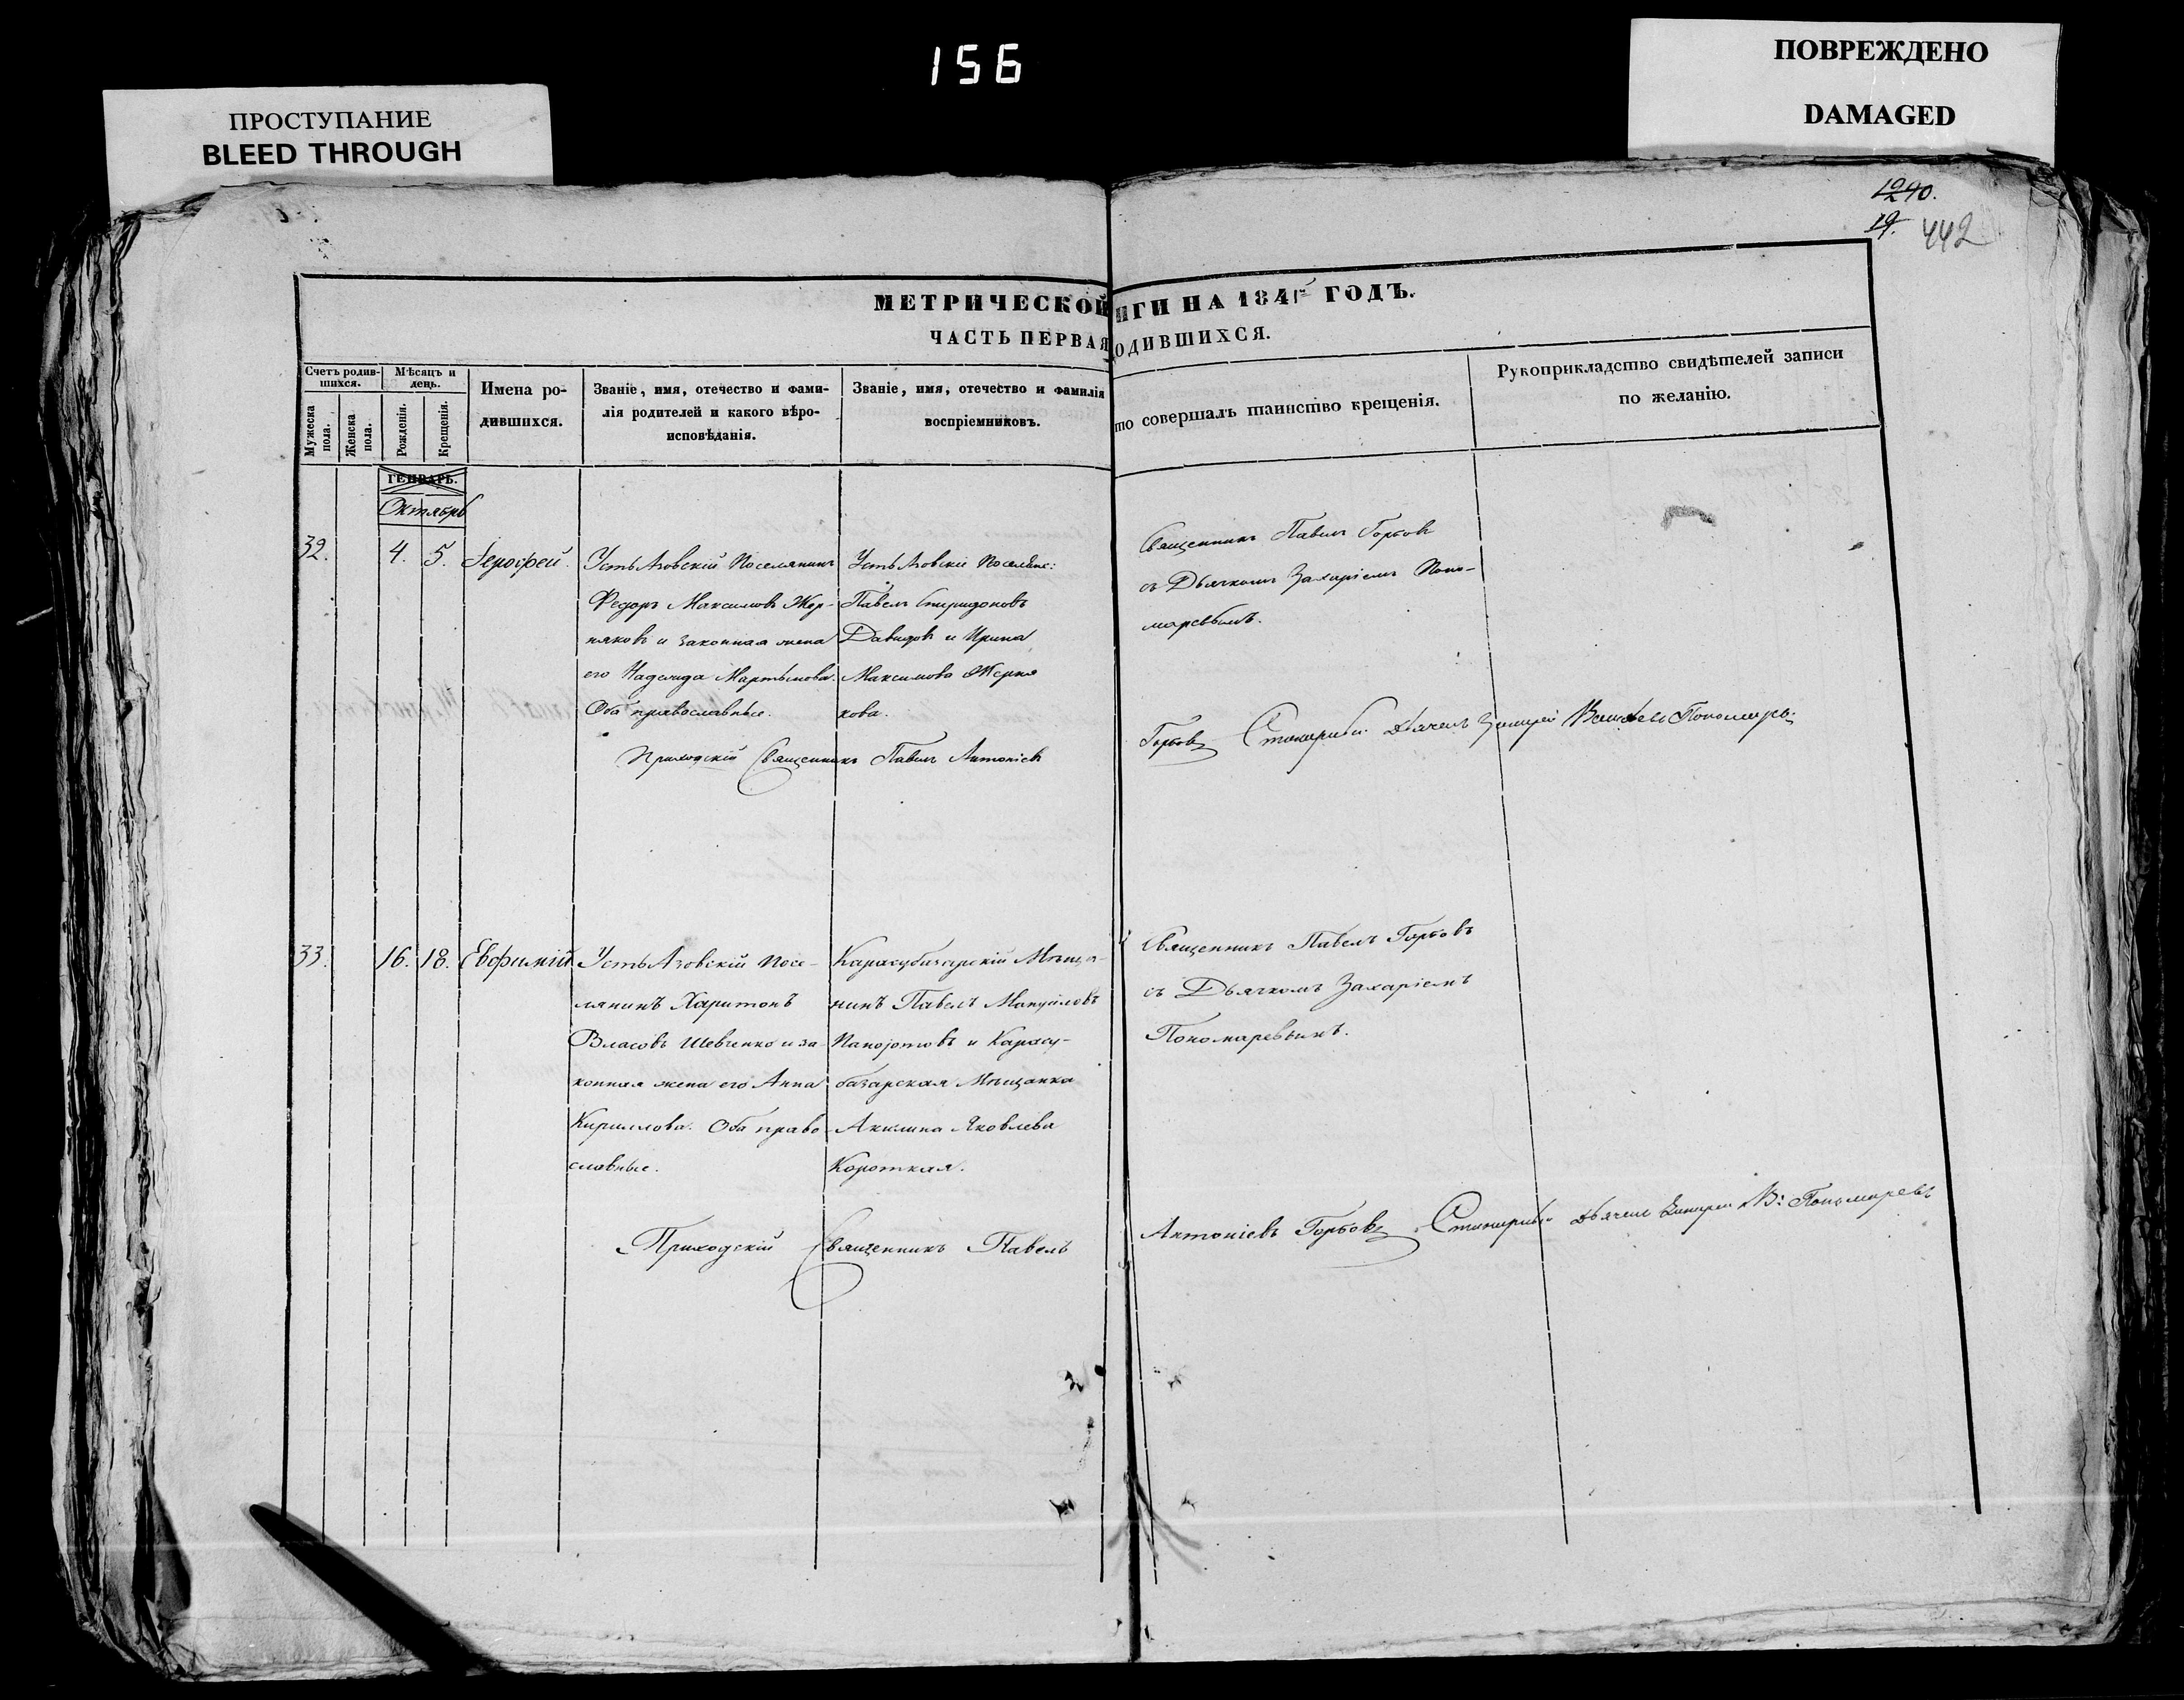 156
ПРОСТУПАНИЕ
BLEED THROUGH
ПОВРЕЖДЕНО
DAMAGED
1290.
19.
442
МЕТРИЧЕСКОЙ
ИГИ НА 1841 ГОДЪ.
ЧАСТЬ ПЕРВАЯ
ОДИВШИХСЯ.
Счетъ родив-
шихся.
Мѣсяцъ и
день.
Мужеска
пола.
Женска
пола.
Рожденія.
Крещенія.
Имена ро-
дившихся.
Званіе, имя, отечество и фами-
лія родителей и какого вѣро-
исповѣданія.
Званіе, имя, отечество и фамилія
воспріемниковъ.
то совершалъ таинство крещенія.
Рукоприкладство свидѣтелей записи
по желанію.
ГЕНВАРЬ.
Октябрь
32.
4.
5.
Іерофей.
Усть Азовскій Поселянинъ
Федоръ Максимовъ Жер-
няковъ и законная жена
его Надежда Мартынова.
Оба православные.
Усть Азовскіе Поселяне:
Павелъ Спиридоновъ
Давидовъ и Ирина
Максимова Жерня
кова.
Священникъ Павелъ Горбовъ
съ Дьячкомъ Захаріемъ Поно-
маревымъ.
Приходскій Священникъ Павелъ Антоніевъ
Горбовъ Дьячекъ Пономаре
33.
16.
18.
Евфимій
Усть Азовскій Посе-
лянинъ Харитонъ
Власовъ Шевченко и за-
конная жена его Анна
Кириллова. Оба право-
славные.
Карасубазарскій Мѣща-
нинъ Павелъ Мануиловъ
Панаіотовъ и Карасу-
базарская Мѣщанка
Акилина Яковлева
Короткая.
Священникъ Павелъ Горбовъ
съ Дьячкомъ Захаріемъ
Пономаревымъ.
Приходскій Священникъ Павелъ
Антоніевъ Горбовъ Дьячекъ В: Пономаревъ